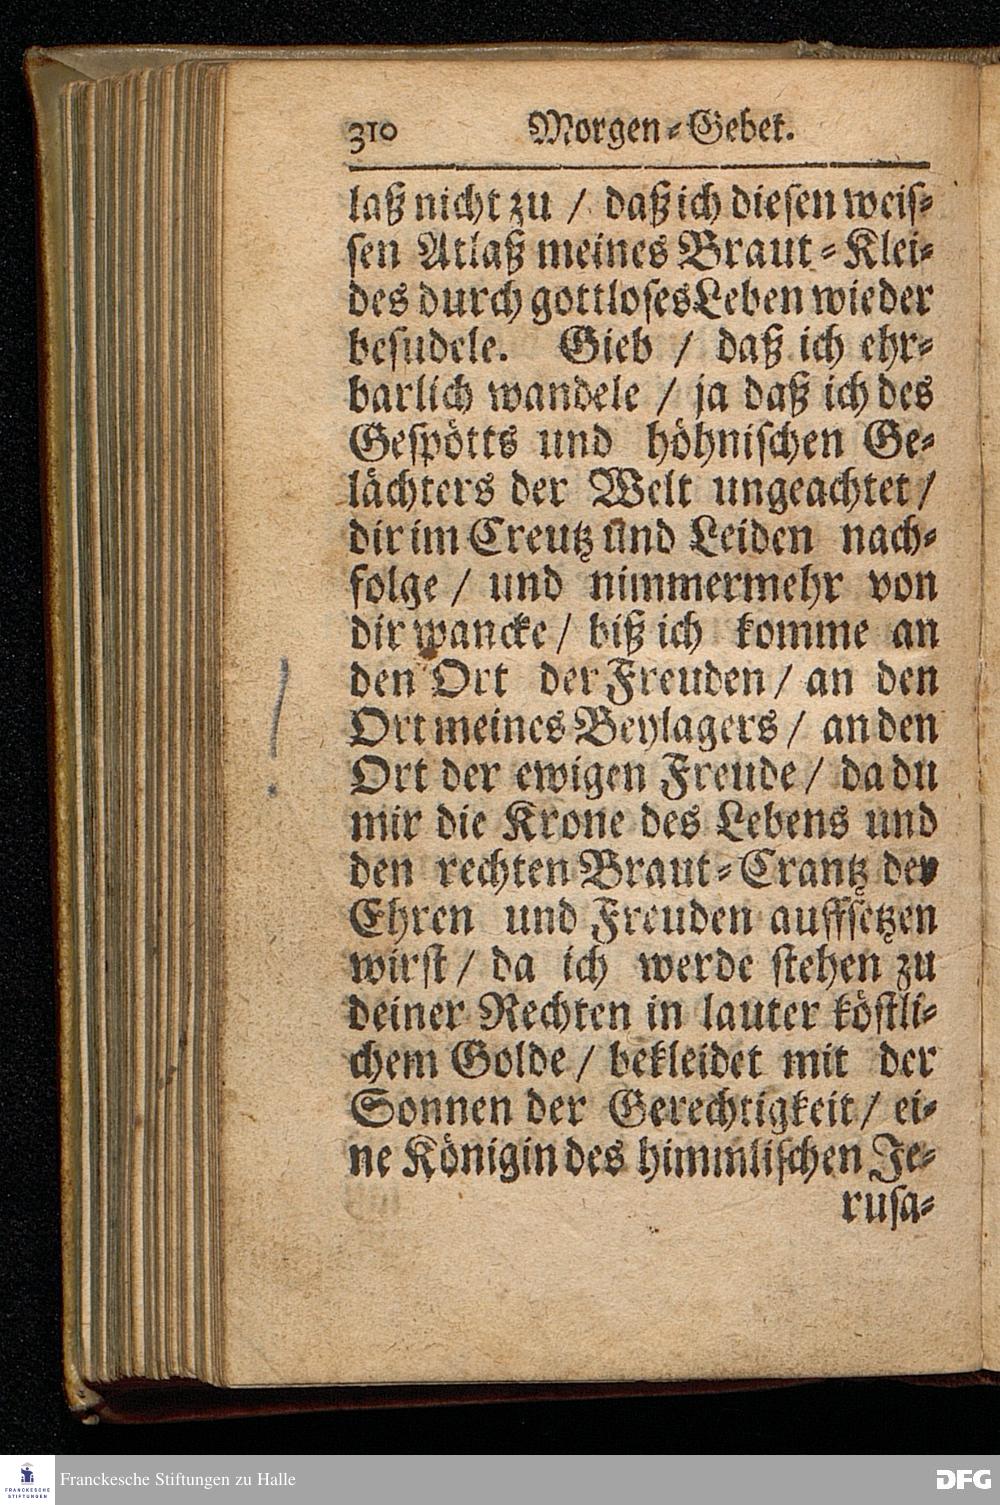 310 Morgen-Gebet.
laß nicht zu / daß ich diesen weis-
sen Atlaß meines Braut-Klei-
des durch gottloses Leben wieder
besudele. Gieb / daß ich ehr-
barlich wandele / ja daß ich des
Gespötts und höhnischen Ge-
lächters der Welt ungeachtet /
dir im Creutz und Leiden nach-
folge / und nimmermehr von
dir wancke / biß ich komme an
den Ort der Freuden / an den
Ort meines Beylagers / an den
Ort der ewigen Freude / da du
mir die Krone des Lebens und
den rechten Braut-Crantz der
Ehren und Freuden auffsetzen
wirst / da ich werde stehen zu
deiner Rechten in lauter köstli-
chem Golde / bekleidet mit der
Sonnen der Gerechtigkeit / ei-
ne Königin des himmlischen Je-
rusa-
FRANCKESCHE
STIFTUNGEN
Franckesche Stiftungen zu Halle
DFG